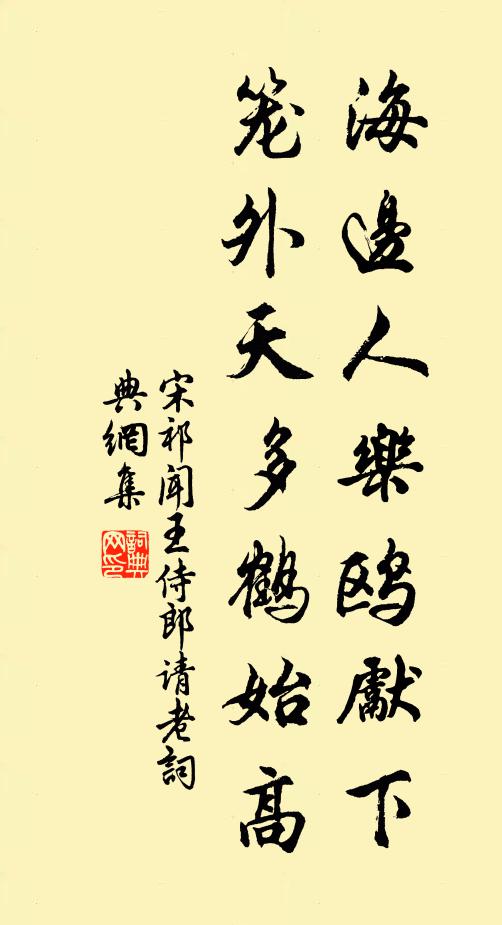 海邊人樂鷗獻下
笼外天多鶴始高
宋祁闻王侍郎请老詞
典網集
詞典
网印